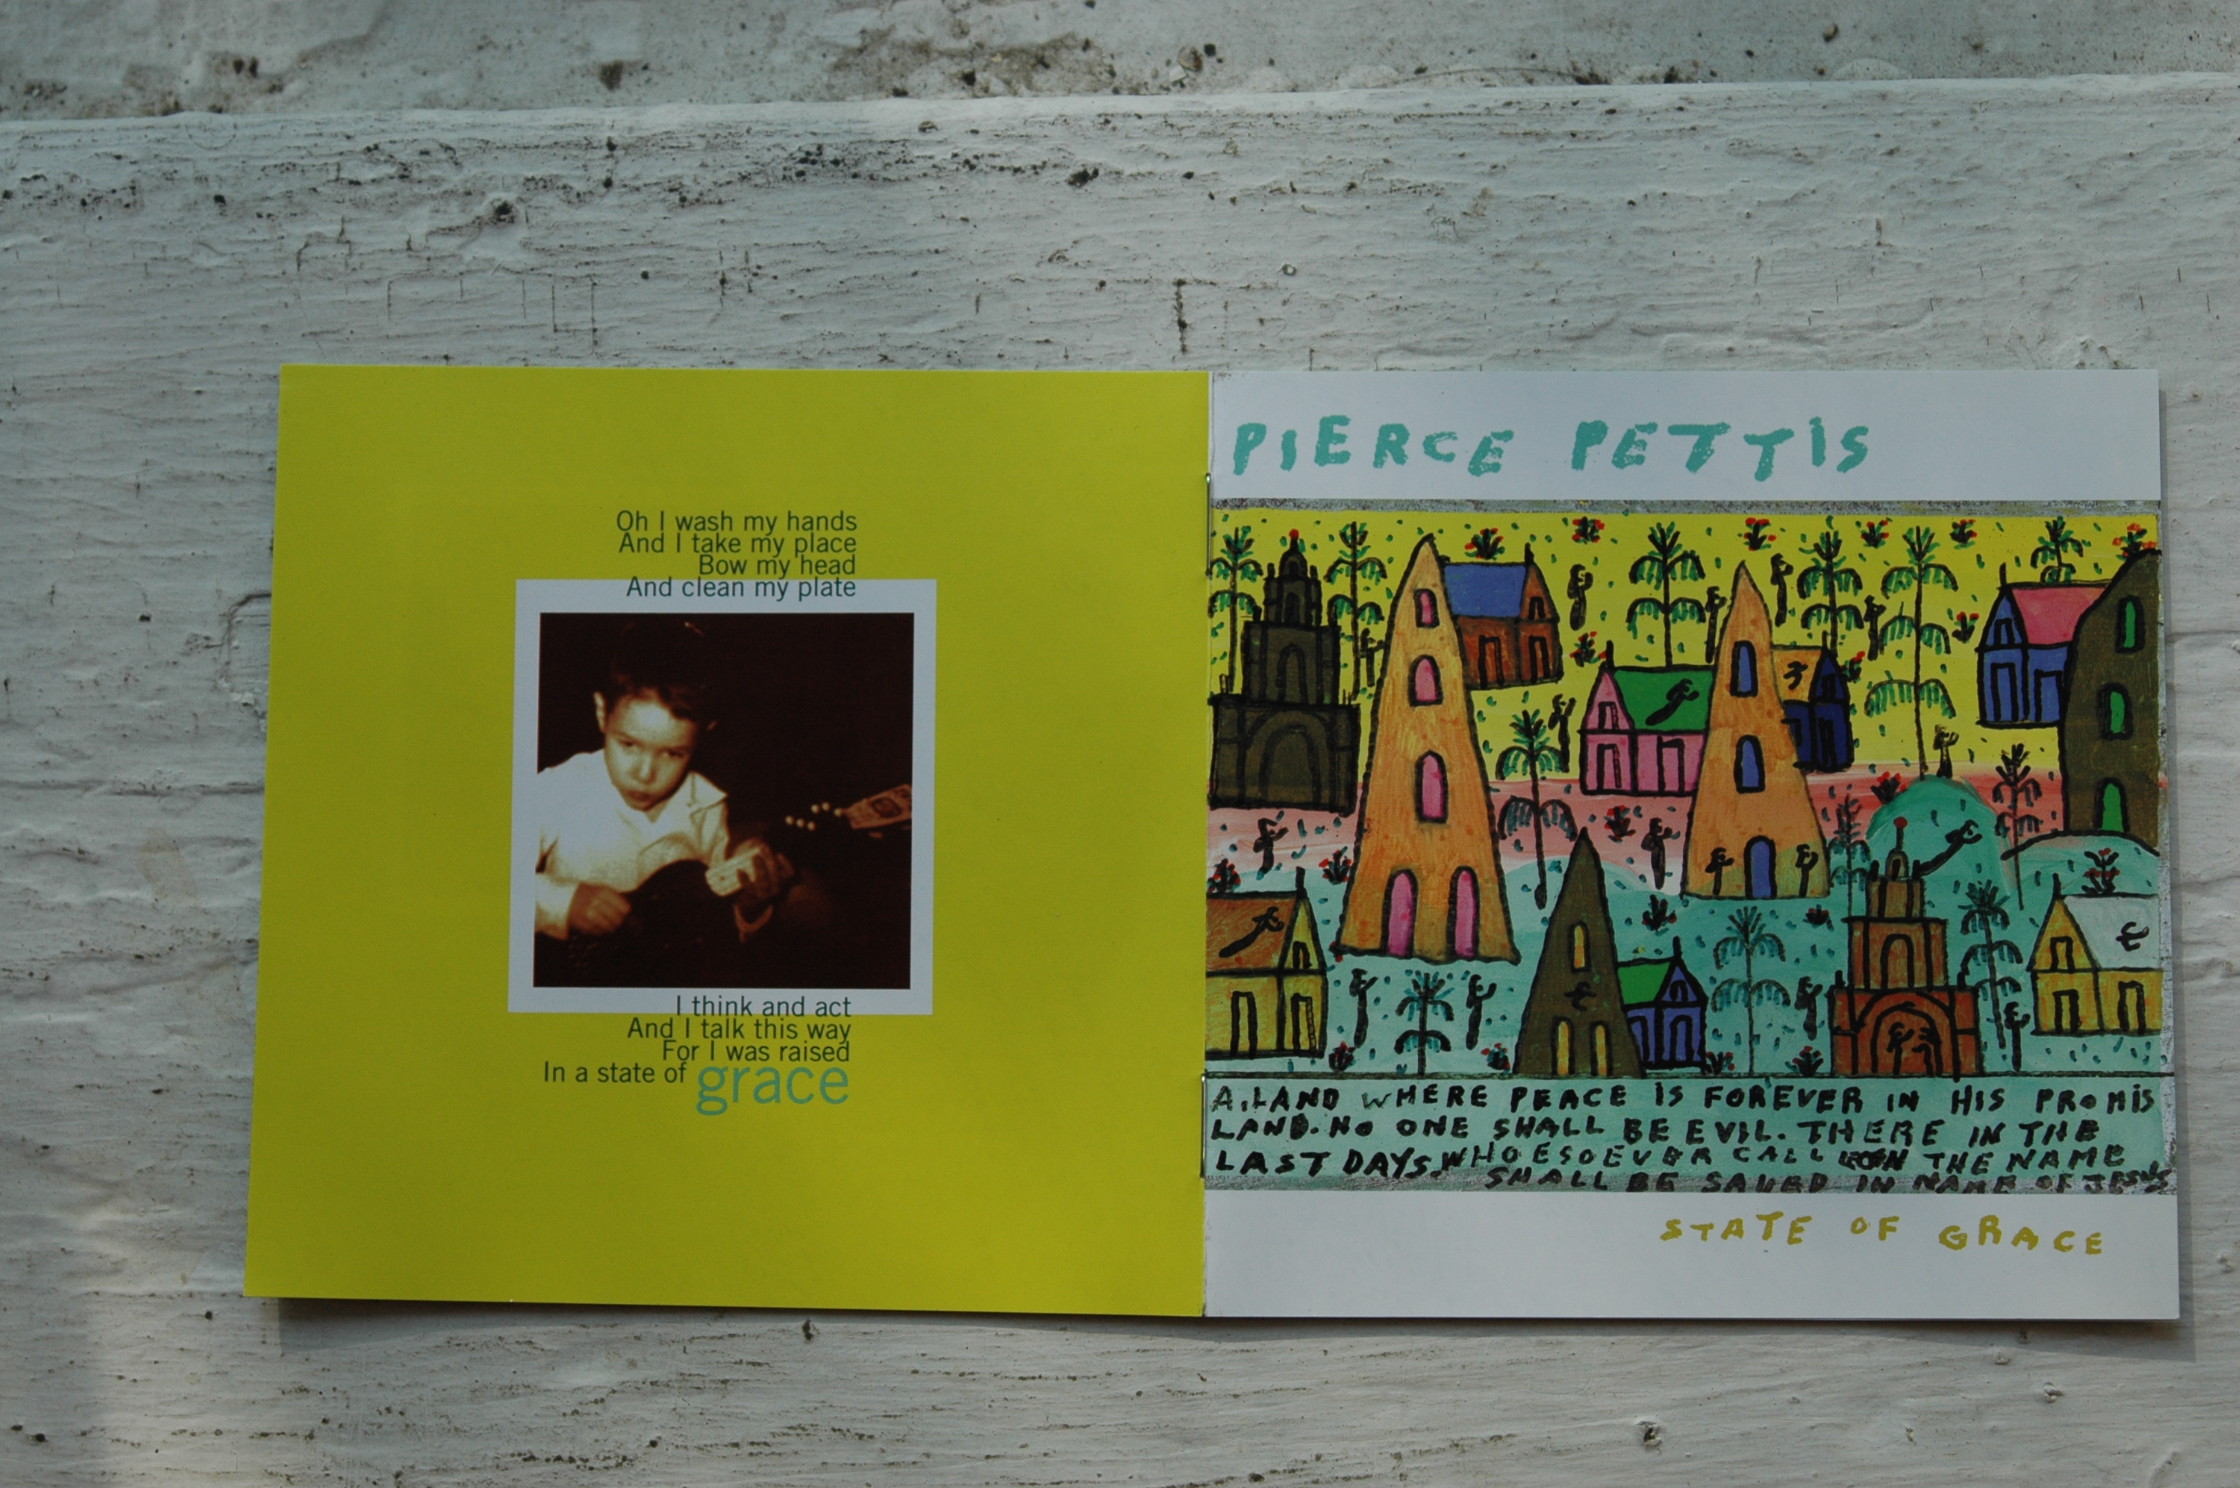 Oh I wash my hands
And I take my place
Bow my head
And clean my plate
I think and act
And I talk this way
For I was raised
In a state of grace
PIERCE PETTIS
A. LAND WHERE PEACE IS FOREVER IN HIS PROMIS
LAND. NO ONE SHALL BE EVIL. THERE IN THE
LAST DAYS. WHOESOEVER CALL ON THE NAME
SHALL BE SAVED IN NAME OF JESUS
STATE OF GRACE